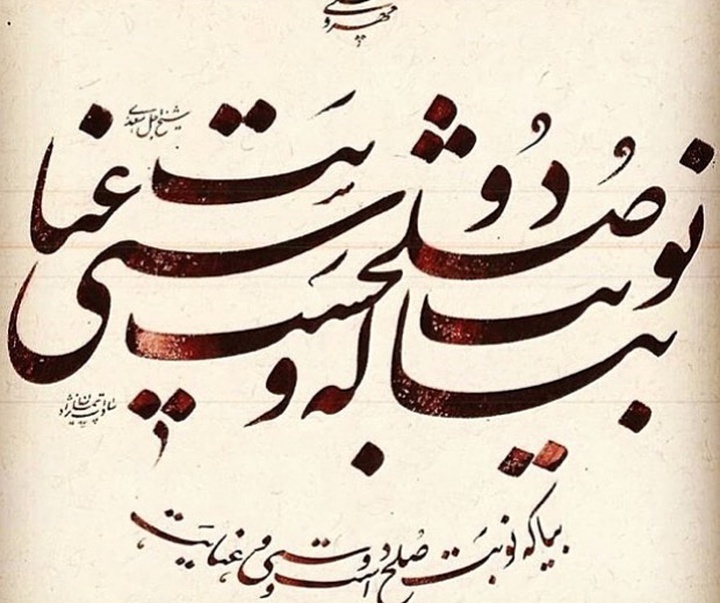 مهر و
شیخ اجل سعدی
بیا که نوبت صلحست و دوستی و عنایت
بیا که نوبت صلح است و دوستی و عنایت